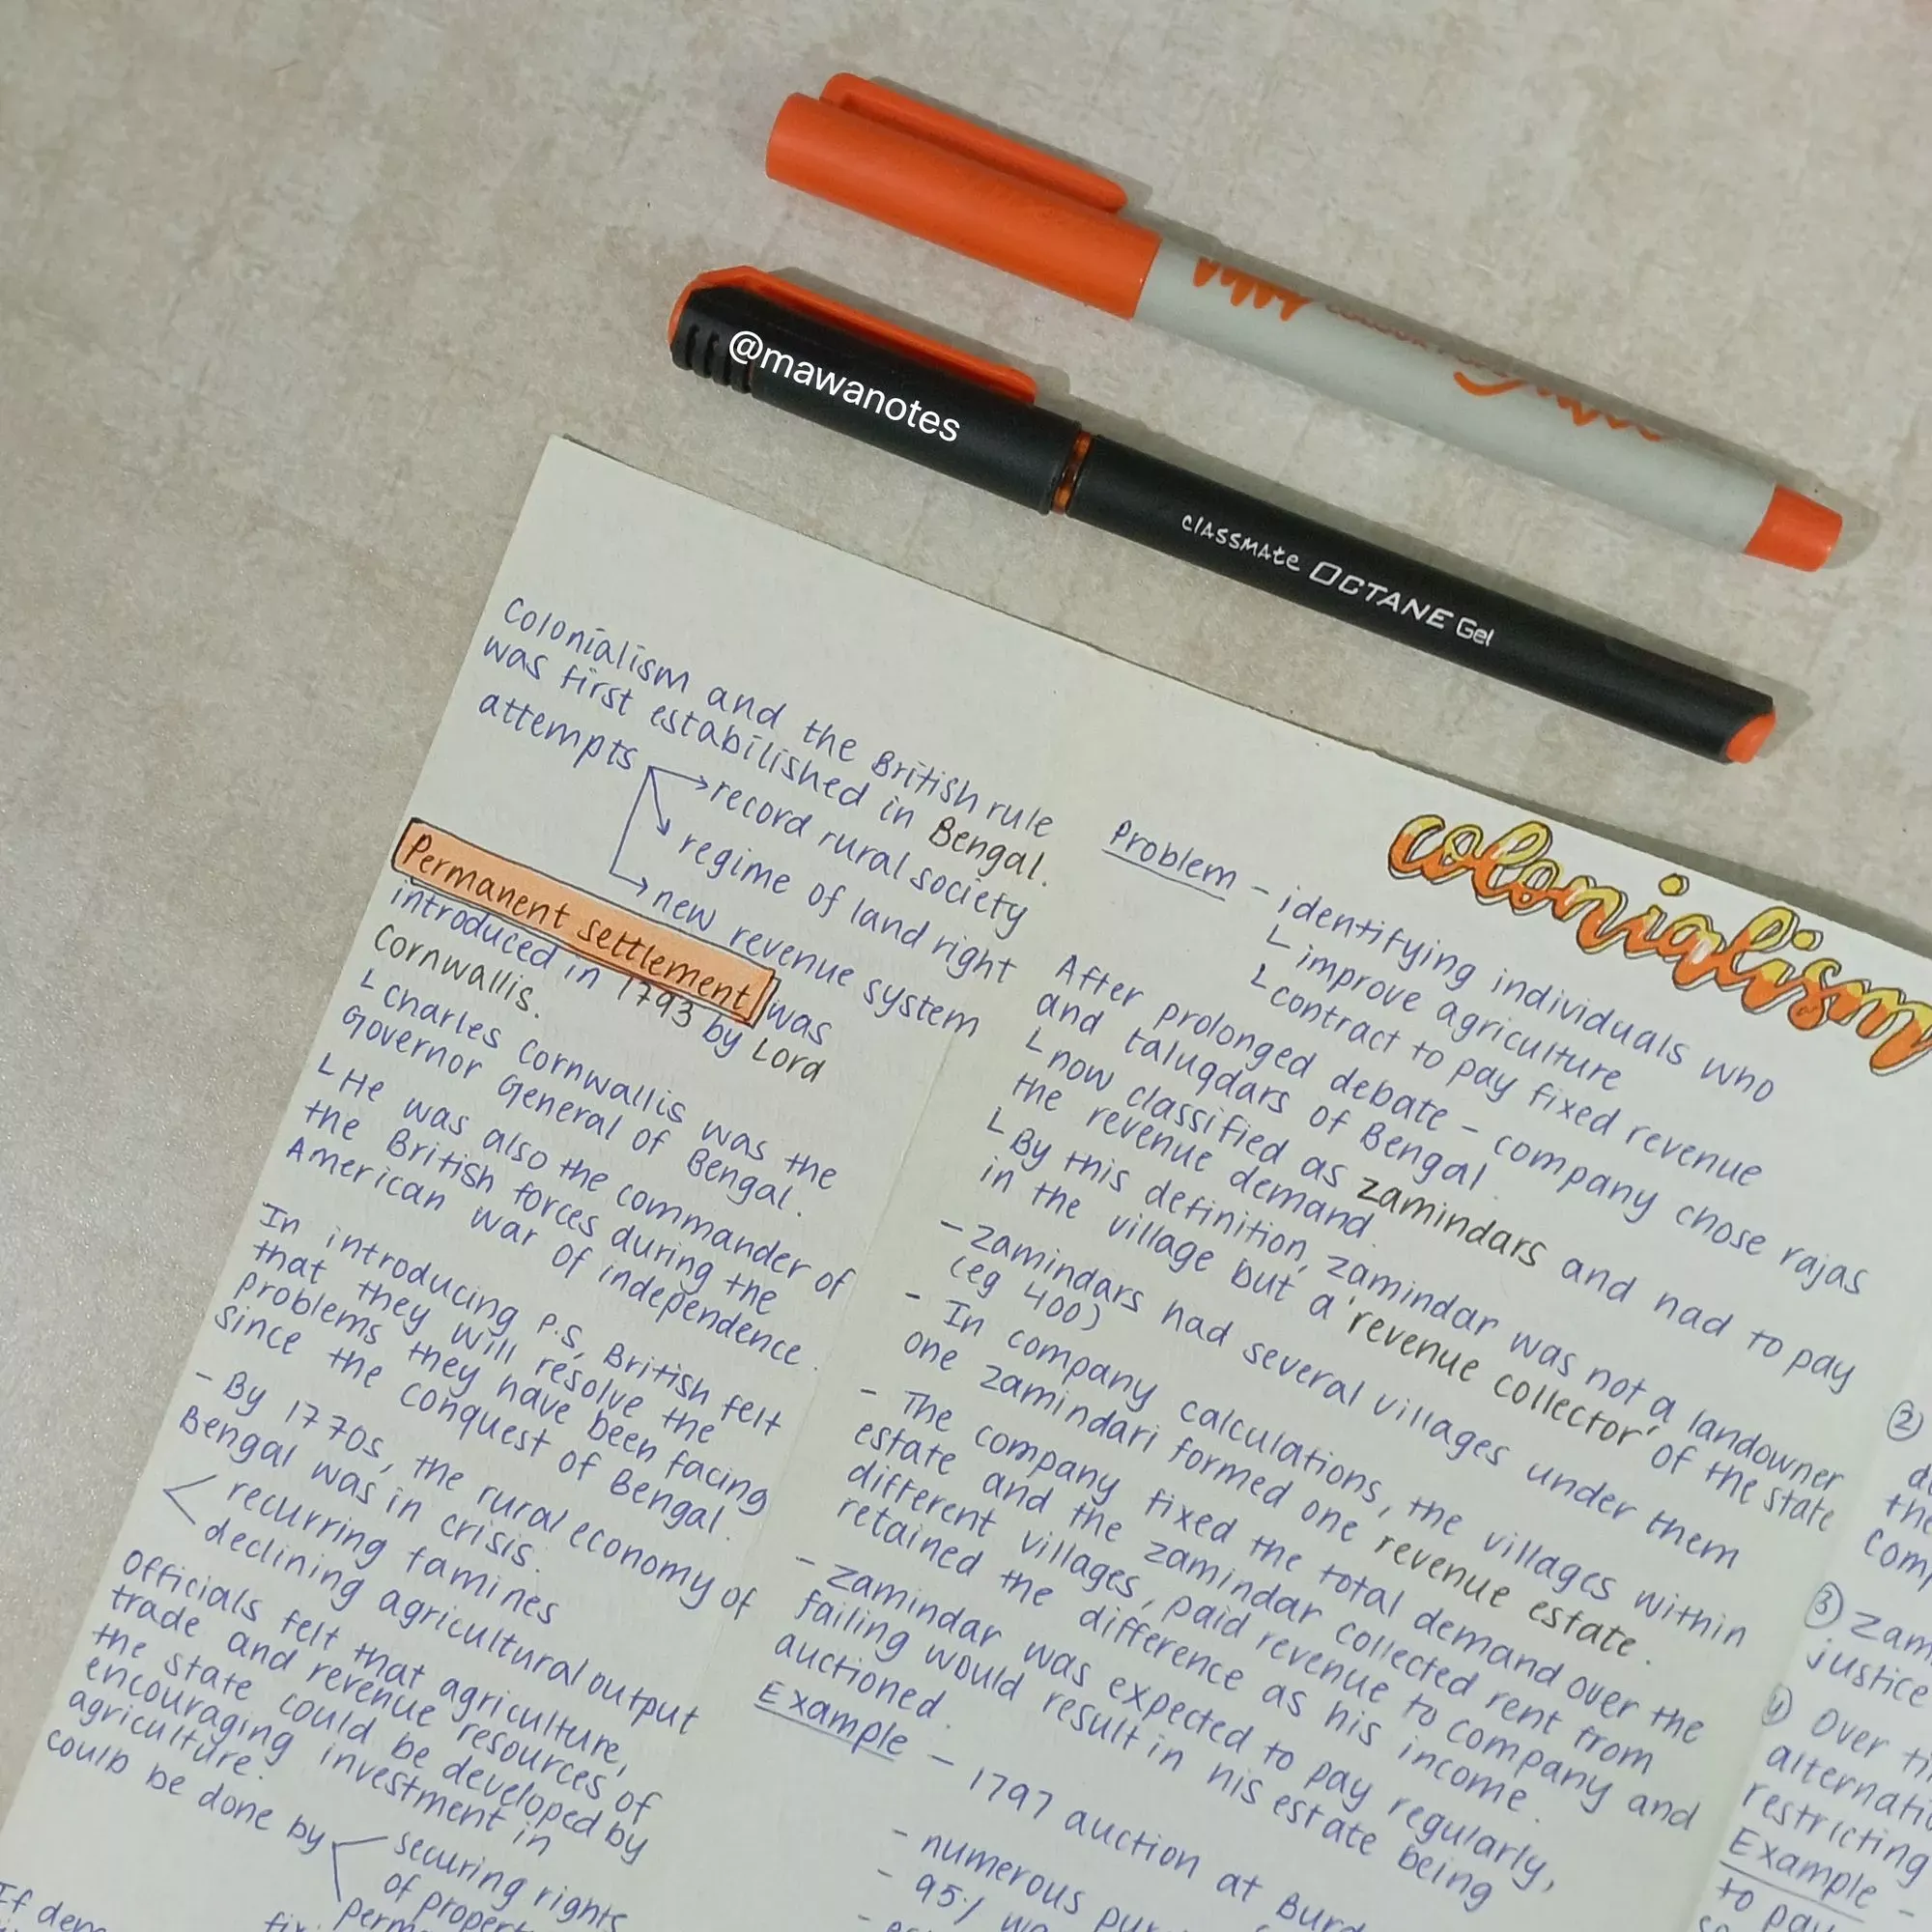 @mawanotes
classmate OCTANE Gel
Colonialism and the British rule
was first estabilished in Bengal.
attempts
record rural society
regime of land right
new revenue system
Permanent settlement was
introduced in 1793 by Lord
Cornwallis.
Charles Cornwallis was the
Governor General of Bengal.
He was also the commander of
the British forces during the
American war of independence.
In introducing P.S, British felt
that they will resolve the
problems they have been facing
since the conquest of Bengal.
- By 1770s, the rural economy of
Bengal was in crisis.
recurring famines
declining agricultural output
Officials felt that agriculture,
trade and revenue resources of
the state could be developed by
encouraging investment in
agriculture.
could be done by
securing rights
of
If
colonialism
Problem - identifying individuals who
improve agriculture
contract to pay fixed revenue
After prolonged debate - company chose rajas
and taluqdars of Bengal.
now classified as zamindars and had to pay
the revenue demand.
By this definition, zamindar was not a landowner
in the village but a 'revenue collector' of the state
- zamindars had several villages under them
(eg 400)
- In company calculations, the villages within
one zamindari formed one revenue estate.
- The company fixed the total demand over the
estate and the zamindar collected rent from
different villages, paid revenue to company and
retained the difference as his income.
- Zamindar was expected to pay regularly,
failing would result in his estate being
auctioned.
Example - 1797 auction at
- numerous
- 95%
②
the
③ Zam
justice
④ Over
restricting
Example -
to pay